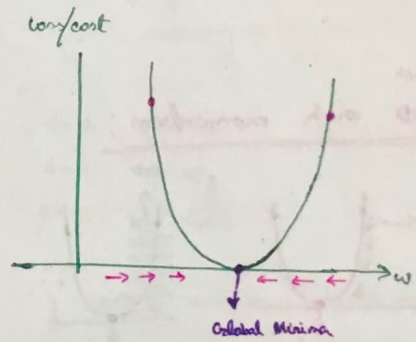 loss/cost
w
Global Minima